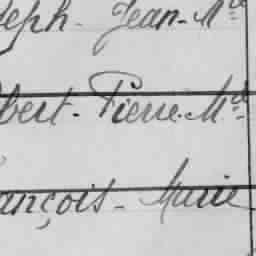 seph - Jean - Mie
bert - Pierre. Md
ançois - Marie